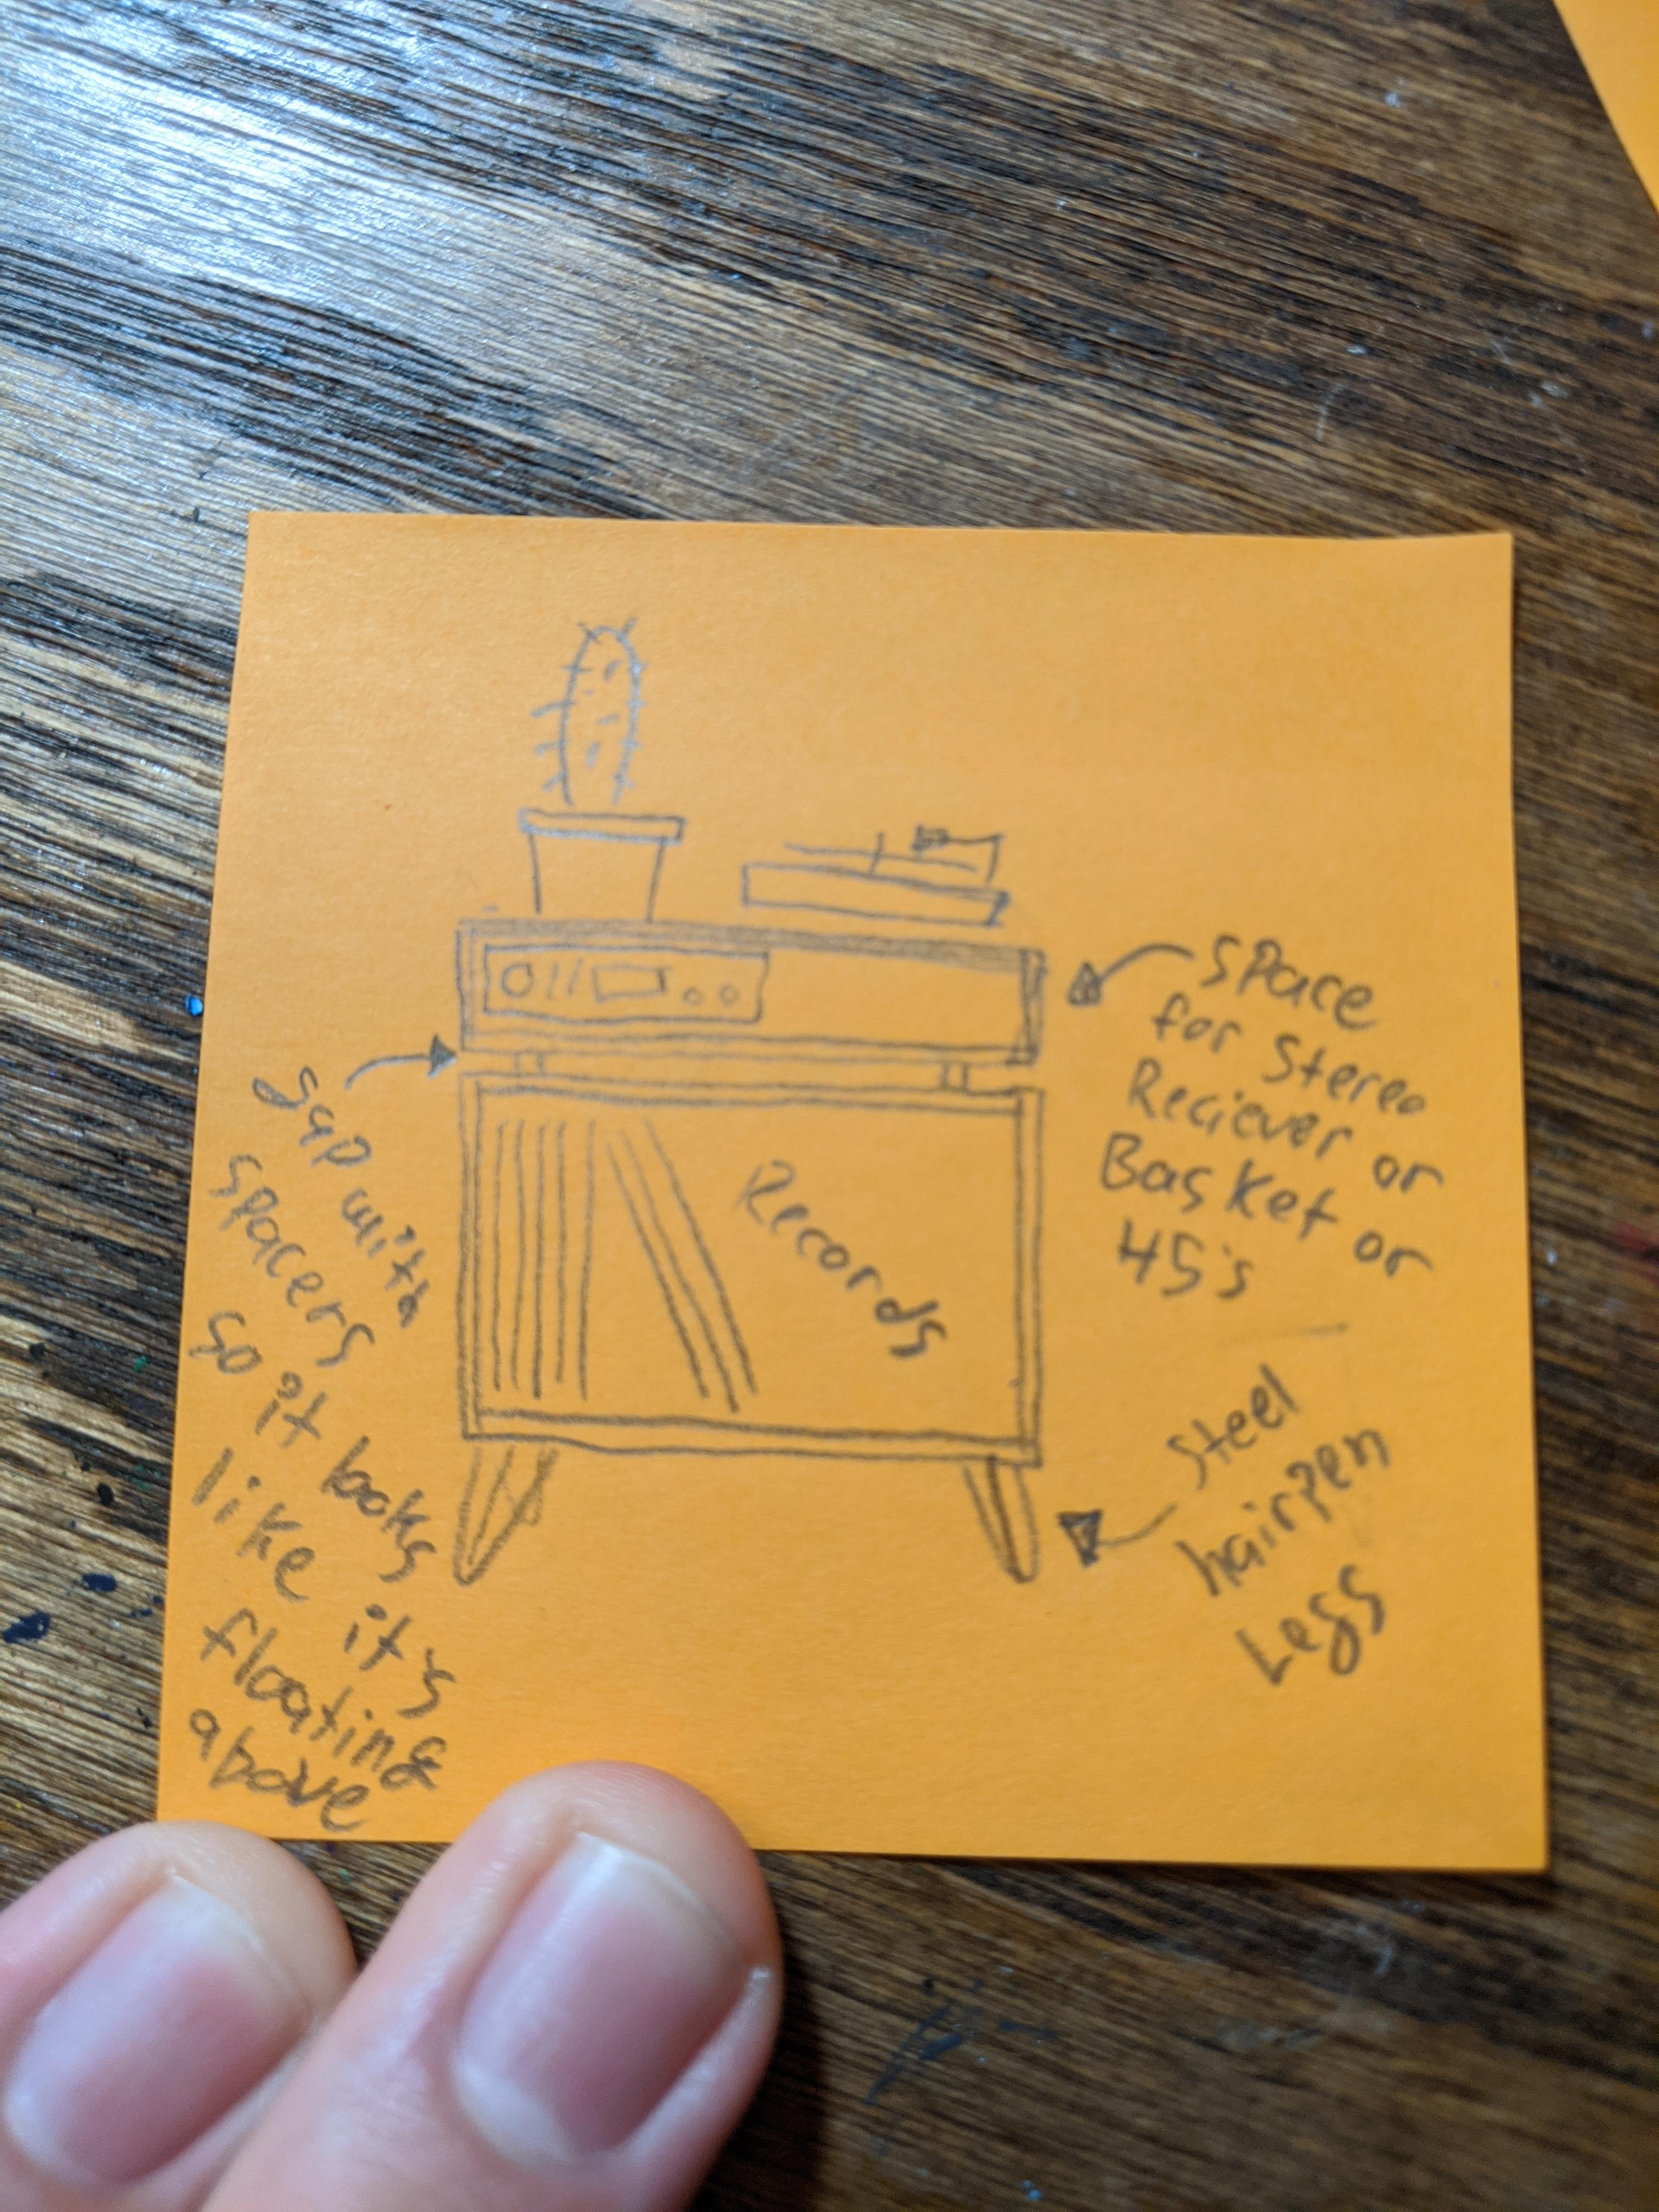 Space
for Stereo
Reciever or
Basket or
45's
gap with
spacers
so it looks
like it's
floating
above
Records
Steel
hairpen
Legs